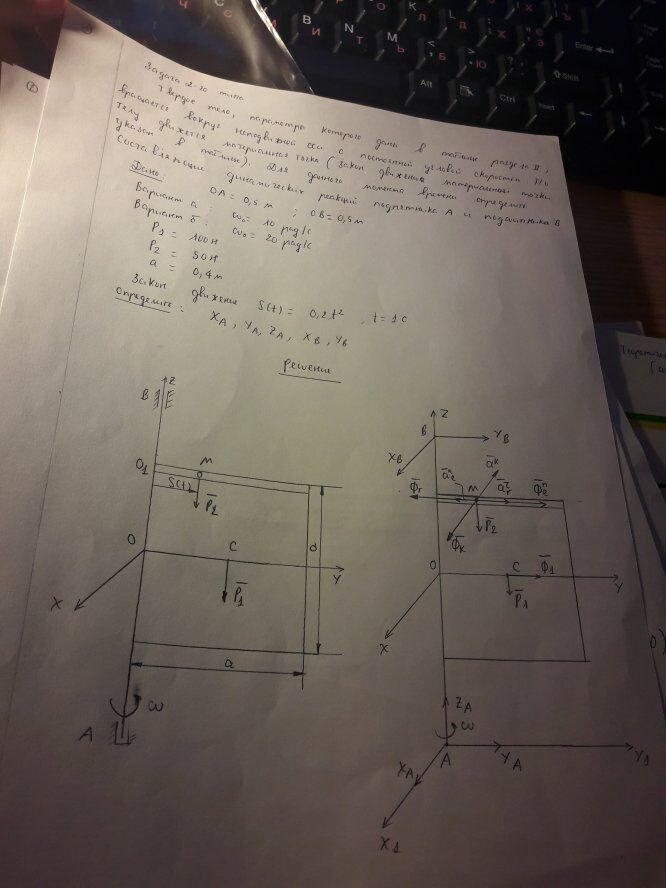 Задача 2-го типа
Твердое тело, параметры которого даны в таблице раздела II,
вращается вокруг неподвижной оси с постоянной угловой скоростью. По
телу движется материальная точка (закон движения материальной точки
указан в таблице). Для данного момента времени определить
составляющие динамических реакций подпятника A и подшипника B
Дано: OA = 0,5 м ; OB = 0,5 м
Вариант а: ω₀ = 10 рад/с
Вариант б: ω₀ = 20 рад/с
P₁ = 100 Н
P₂ = 50 Н
a = 0,4 м
Закон движение S(t) = 0,2t² , t = 1 с
Определить: X_A, Y_A, Z_A, X_B, Y_B
Решение
B Z
O₁ M
S(t)
P̄₂
O C Y
X P̄₁
a
a
A ω
Z
B Y_B
X_B
Φ̄r M Φ̄
P̄₂
Φ̄к
O C Φ̄₁ Y
P̄₁
X
Z_A
ω
A Y_A Y₁
X_A
X₁
Enter
Shift
Alt
Ctrl